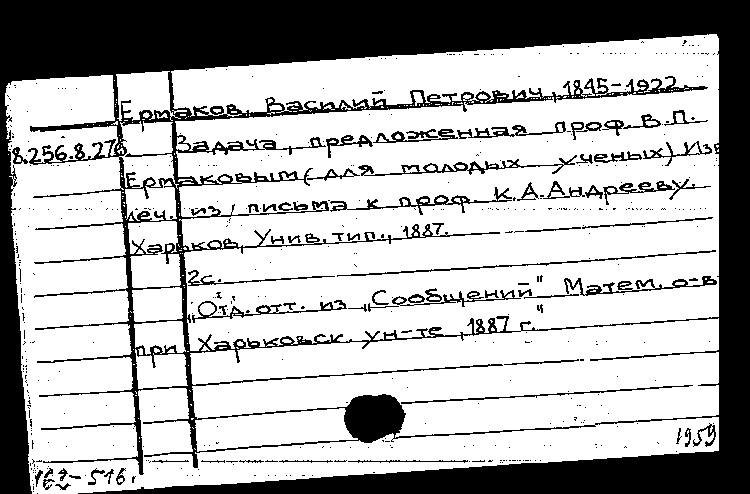 Ермаков, Василий Петрович, 1845-1922.
8.256.8.276. Задача, предложенная проф. В.П.
Ермаковым (для молодых ученых) Изв
леч. из, письма к проф. К.А.Андрееву.
Харьков, Унив. тип., 1887.
2с.
"Отд. отт. из "Сообщений" Матем. о-в
при Харьковск. ун-те, 1887 г."
1959
162-516.